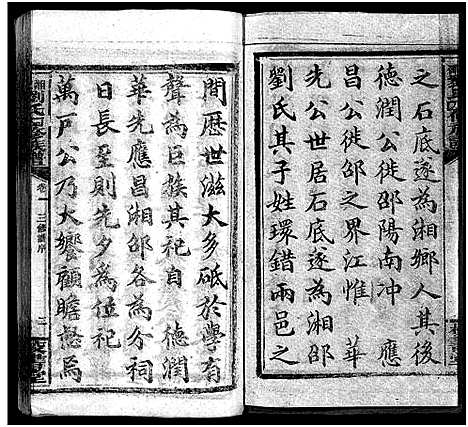 之石底遂為湘鄉人其後
德潤公徙邵陽南冲　應
昌公徙邵之界江惟　華
先公世居石底遂為湘邵
劉氏其子姓環錯兩邑之
間歷世滋大多砥於學有
聲為巨族其祀自　德潤
華先應昌湘邵各為分祠
日長至則先夕為位祀
萬戶公乃大饗顧瞻愁焉
卷一
三修譜序
二